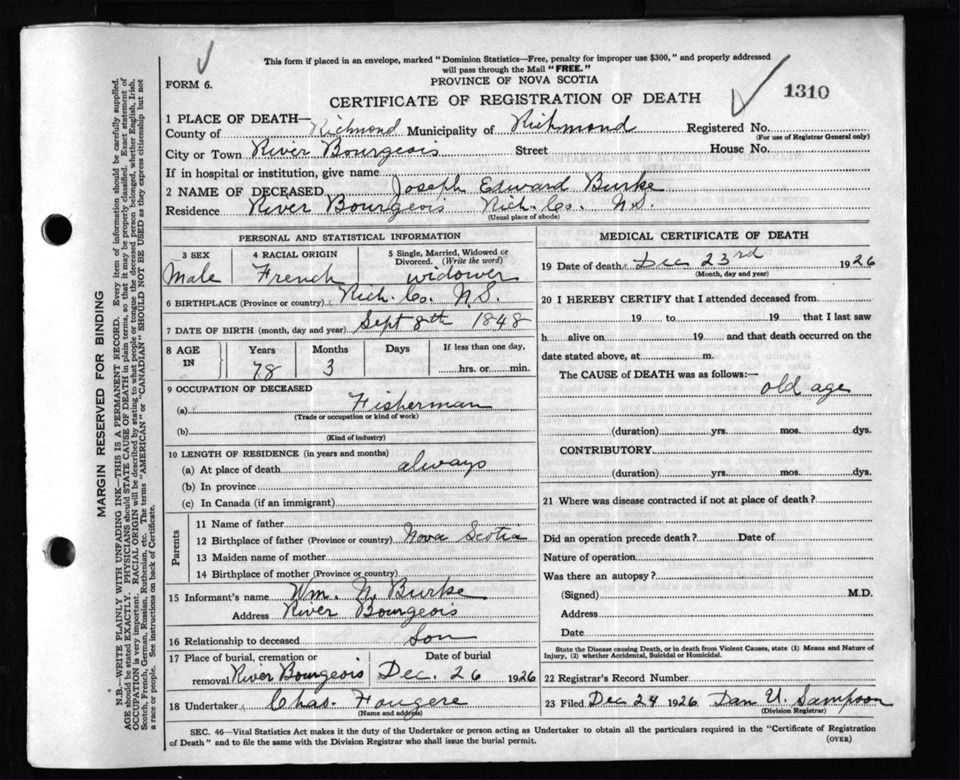 This form if placed in an envelope, marked "Dominion Statistics—Free, penalty for improper use $300," and properly addressed
will pass through the Mail "FREE."
FORM 6.
PROVINCE OF NOVA SCOTIA
CERTIFICATE OF REGISTRATION OF DEATH
1310
1 PLACE OF DEATH—
County of Richmond Municipality of Richmond Registered No.
(For use of Registrar General only)
City or Town River Bourgeois Street House No.
If in hospital or institution, give name
2 NAME OF DECEASED Joseph Edward Burke
Residence River Bourgeois Rich. Co. N.S.
(Usual place of abode)
PERSONAL AND STATISTICAL INFORMATION
3 SEX
Male
4 RACIAL ORIGIN
French
5 Single, Married, Widowed or
Divorced. (Write the word)
widower
6 BIRTHPLACE (Province or country) Rich. Co. N.S.
7 DATE OF BIRTH (month, day and year) Sept 8th 1848
8 AGE
IN
Years
78
Months
3
Days
If less than one day,
hrs. or min.
9 OCCUPATION OF DECEASED
(a) Fisherman
(Trade or occupation or kind of work)
(b)
(Kind of industry)
10 LENGTH OF RESIDENCE (in years and months)
(a) At place of death always
(b) In province
(c) In Canada (if an immigrant)
Parents
11 Name of father
12 Birthplace of father (Province or country) Nova Scotia
13 Maiden name of mother
14 Birthplace of mother (Province or country)
15 Informant's name Wm. N. Burke
Address River Bourgeois
16 Relationship to deceased Son
17 Place of burial, cremation or
removal River Bourgeois
Date of burial
Dec. 26 1926
18 Undertaker Chas. Fougere
(Name and address)
MEDICAL CERTIFICATE OF DEATH
19 Date of death Dec 23rd 1926
(Month, day and year)
20 I HEREBY CERTIFY that I attended deceased from
19 to 19 that I last saw
h alive on 19 and that death occurred on the
date stated above, at m.
The CAUSE of DEATH was as follows:—
old age
(duration) yrs. mos. dys.
CONTRIBUTORY
(duration) yrs. mos. dys.
21 Where was disease contracted if not at place of death?
Did an operation precede death? Date of
Nature of operation
Was there an autopsy?
(Signed) M.D.
Address
Date
State the Disease causing Death, or in death from Violent Causes, state (1) Means and Nature of
Injury, (2) whether Accidental, Suicidal or Homicidal.
22 Registrar's Record Number
23 Filed Dec 24 1926 Dan U. Sampson
(Division Registrar)
SEC. 46—Vital Statistics Act makes it the duty of the Undertaker or person acting as Undertaker to obtain all the particulars required in the "Certificate of Registration
of Death" and to file the same with the Division Registrar who shall issue the burial permit.
(OVER)
MARGIN RESERVED FOR BINDING
N.B.—WRITE PLAINLY WITH UNFADING INK—THIS IS A PERMANENT RECORD. Every item of information should be carefully supplied.
AGE should be stated EXACTLY. PHYSICIANS should STATE CAUSE OF DEATH in plain terms, so that it may be properly classified. Exact statement of
OCCUPATION is very important. RACIAL ORIGIN will be described by stating to what people or tongue the deceased person belonged, whether English, Irish,
Scotch, French, German, Russian, Ruthenian, etc. The terms "AMERICAN" or "CANADIAN" SHOULD NOT BE USED as they express citizenship but not
a race or people. See instructions on back of Certificate.